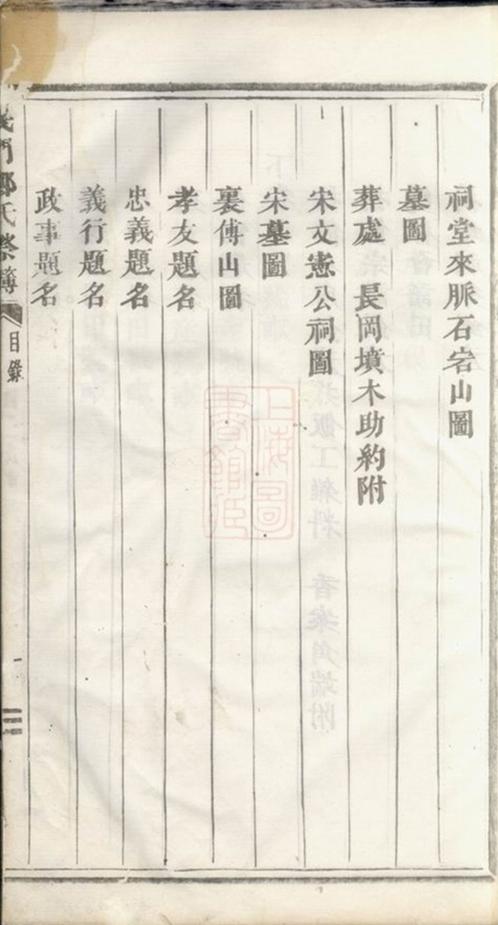 祠堂來脈石宕山圖
墓圖
葬處 長岡墳木助約附
宋文憲公祠圖
宋墓圖
裏傅山圖
孝友題名
忠義題名
義行題名
政事題名
義門鄭氏祭簿
目錄
上海圖書館藏